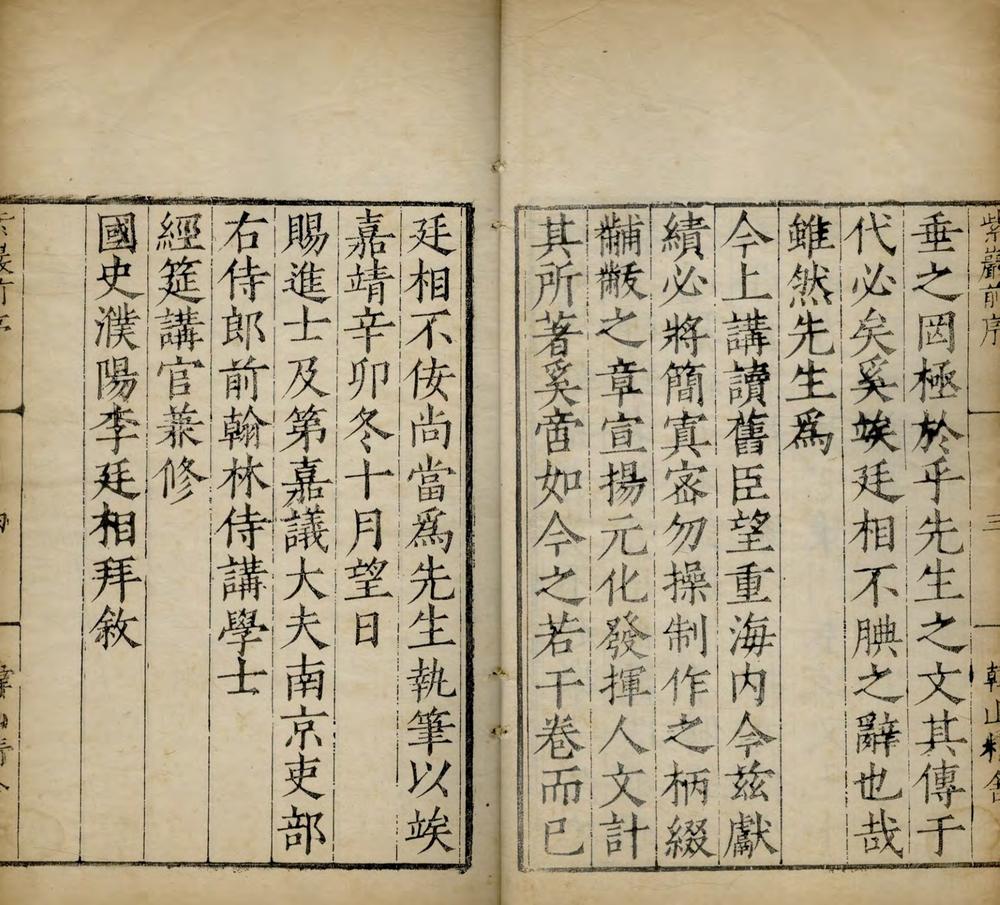 紫巖前序 三
垂之罔極於乎先生之文其傳于
代必矣奚竢廷相不腆之辭也哉
雖然先生爲
今上講讀舊臣望重海內今兹獻
績必將簡寘密勿操制作之柄綴
黼黻之章宣揚元化發揮人文計
其所著奚啻如今之若干卷而已
廷相不佞尚當爲先生執筆以竢
嘉靖辛卯冬十月望日
賜進士及第嘉議大夫南京吏部
右侍郎前翰林侍講學士
經筵講官兼修
國史濮陽李廷相拜敘